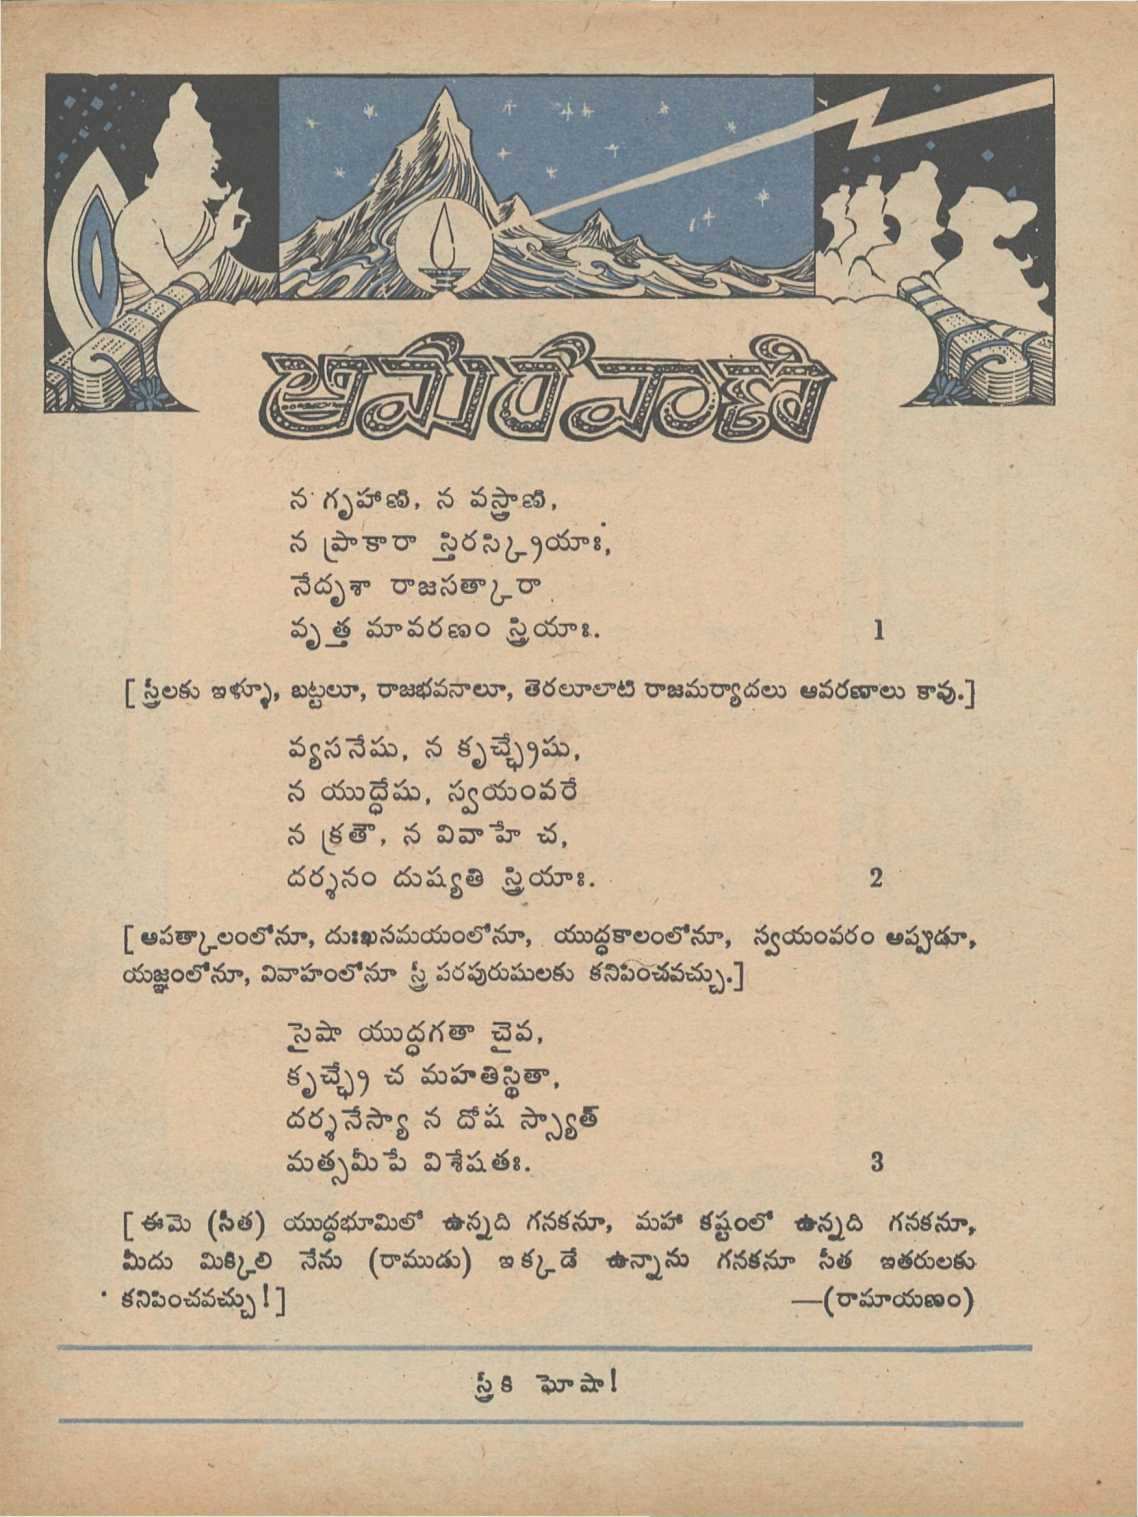 అమరవాణి
న గృహాణి, న వస్త్రాణి,
న ప్రాకారా స్తిరస్క్రియాః,
నేదృశా రాజసత్కారా
వృత్త మావరణం స్త్రియాః. 1
[ స్త్రీలకు ఇళ్ళూ, బట్టలూ, రాజభవనాలూ, తెరలూలాటి రాజమర్యాదలు ఆవరణాలు కావు.]
వ్యసనేషు, న కృచ్ఛ్రేషు,
న యుద్ధేషు, స్వయంవరే
న క్రతౌ, న వివాహే చ,
దర్శనం దుష్యతి స్త్రియాః. 2
[ ఆపత్కాలంలోనూ, దుఃఖసమయంలోనూ, యుద్ధకాలంలోనూ, స్వయంవరం అప్పుడూ,
యజ్ఞంలోనూ, వివాహంలోనూ స్త్రీ పరపురుషులకు కనిపించవచ్చు.]
సైషా యుద్ధగతా చైవ,
కృచ్ఛ్రే చ మహతిస్థితా,
దర్శనేస్యా న దోష స్స్యాత్
మత్సమీపే విశేషతః. 3
[ ఈమె (సీత) యుద్ధభూమిలో ఉన్నది గనకనూ, మహా కష్టంలో ఉన్నది గనకనూ,
మీదు మిక్కిలి నేను (రాముడు) ఇక్కడే ఉన్నాను గనకనూ సీత ఇతరులకు
కనిపించవచ్చు! ] —(రామాయణం)
స్త్రీకి ఘోషా!